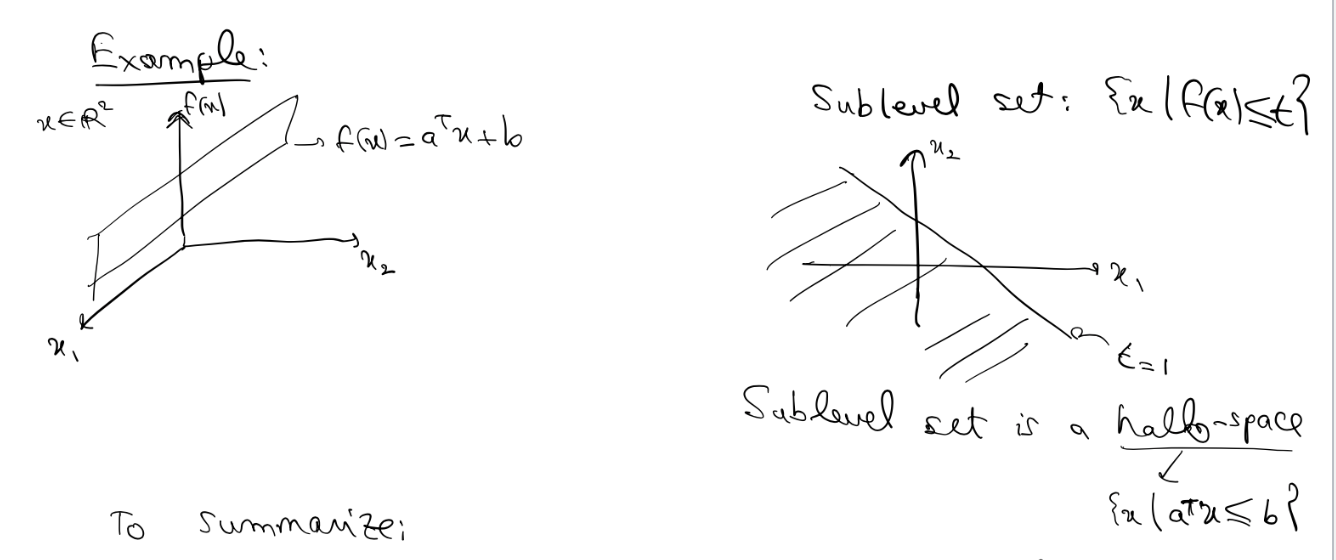 Example:
x ∈ ℝ²
f(x)
→ f(x) = aᵀx + b
x₂
x₁
Sublevel set: {x | f(x) ≤ t}
x₂
x₁
t=1
Sublevel set is a half-space
{x | aᵀx ≤ b}
To summarize: